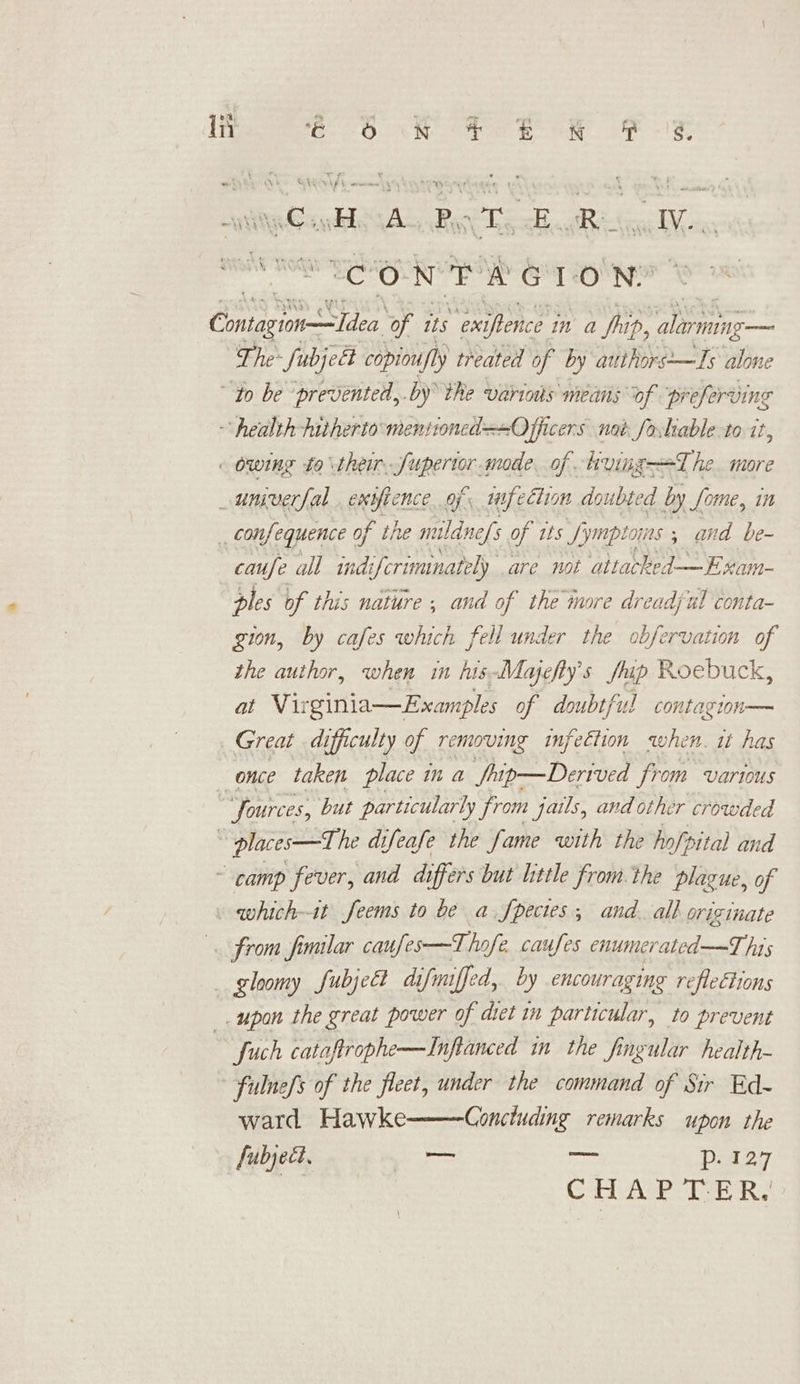 lii CONTENTS.
CHAPTER IV.
CONTAGION.
Contagion—Idea of its exiſtence in a ſhip, alarming—
The ſubject copiouſly treated of by authors—Is alone
to be prevented, by the various means of preſerving
health hitherto mentioned—Officers not ſo liable to it,
owing to their ſuperior mode of living—The more
univerſal exiſtence of infection doubted by ſome, in
conſequence of the mildneſs of its ſymptoms; and be-
cauſe all indiſcriminately are not attacked—Exam-
ples of this nature; and of the more dreadful conta-
gion, by caſes which fell under the obſervation of
the author, when in his Majeſty's ſhip Roebuck,
at Virginia—Examples of doubtful contagion—
Great difficulty of removing infection when it has
once taken place in a ſhip—Derived from various
ſources, but particularly from jails, and other crowded
places—The diſeaſe the ſame with the hoſpital and
camp fever, and differs but little from the plague, of
which it ſeems to be a ſpecies; and all originate
from ſimilar cauſes—Thoſe cauſes enumerated—This
gloomy ſubject diſmiſſed, by encouraging reflections
upon the great power of diet in particular, to prevent
ſuch cataſtrophe—Inſtanced in the ſingular health-
fulneſs of the fleet, under the command of Sir Ed-
ward Hawke——Concluding remarks upon the
ſubject. — — p. 127
CHAPTER.